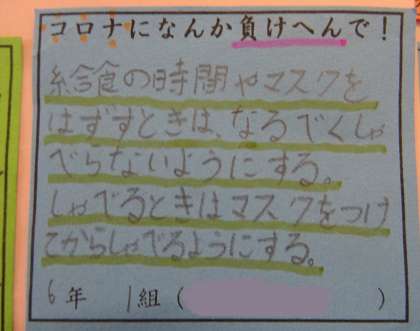 コロナになんか負けへんで！
給食の時間やマスクを
はずすときは、なるべくしゃ
べらないようにする。
しゃべるときはマスクをつけ
てからしゃべるようにする。
6年 1組（ ）